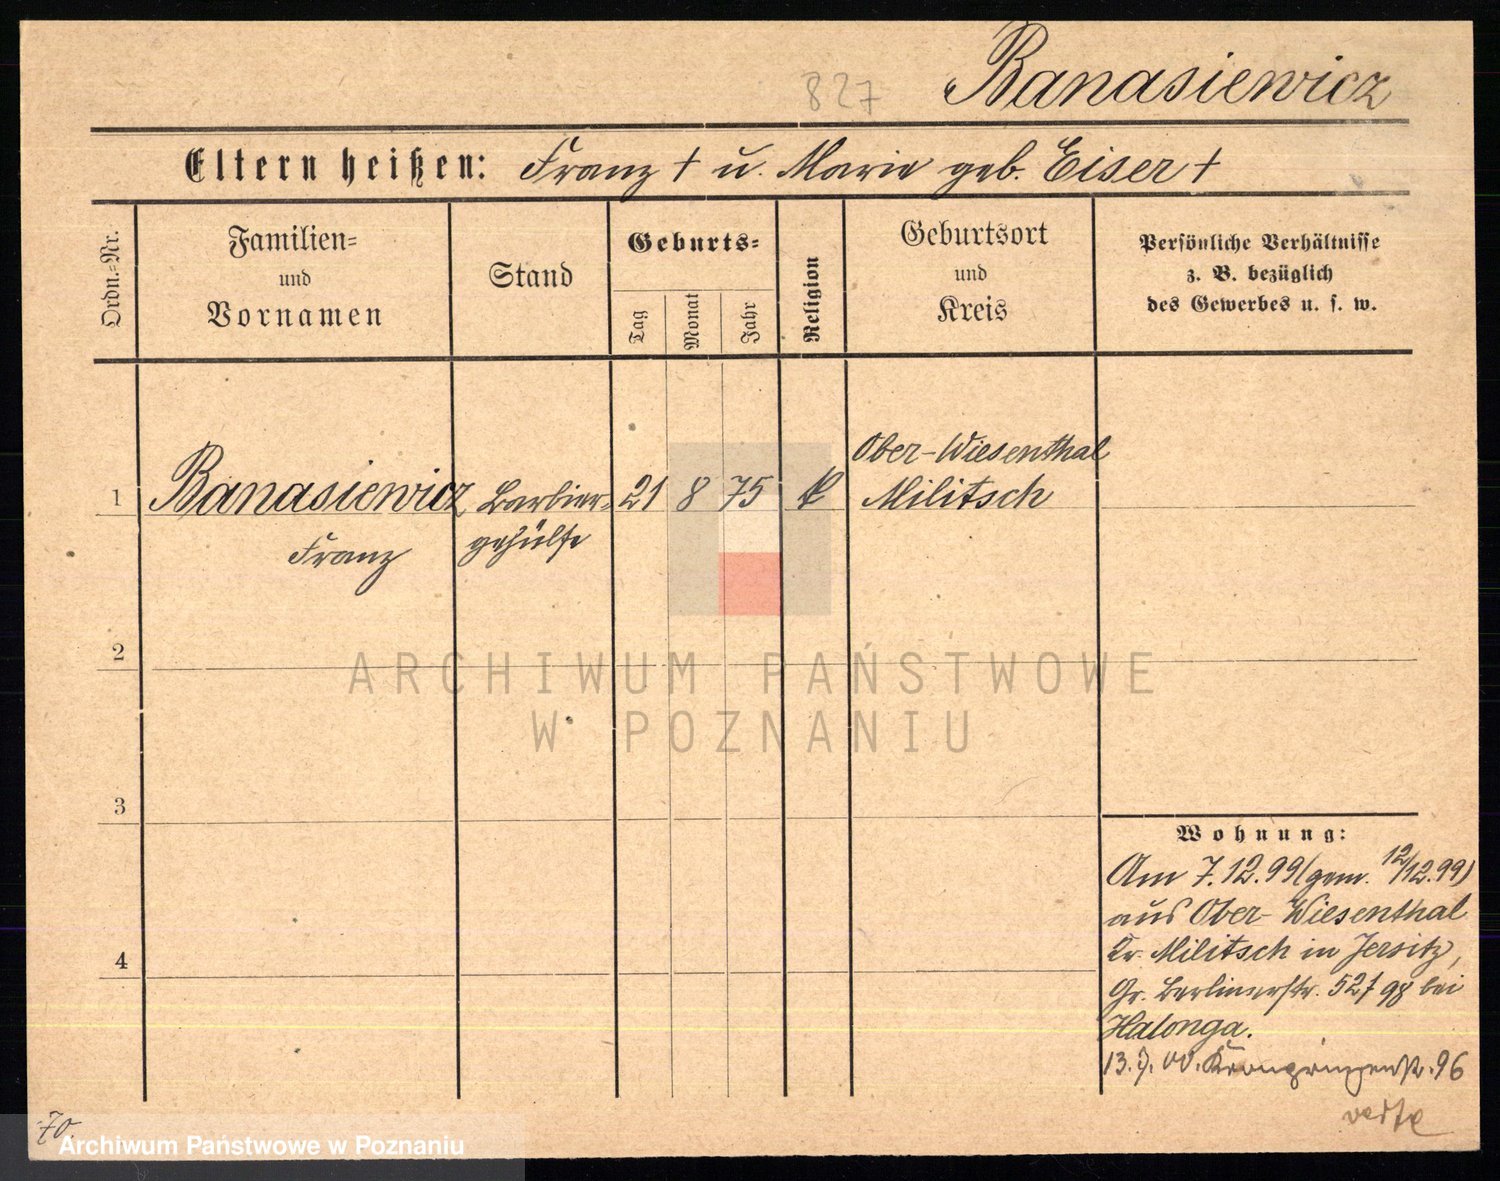 827 Banasiewicz
Eltern heißen: Franz † u. Marie geb. Eiser †
Ordn.-Nr.
Familien-
und
Vornamen
Stand
Geburts-
Tag
Monat
Jahr
Religion
Geburtsort
und
Kreis
Persönliche Verhältnisse
z. B. bezüglich
des Gewerbes u. s. w.
1 Banasiewicz Barbier- 21 8 75 k Ober-Wiesenthal
Franz gehülfe Militsch
2
ARCHIWUM PAŃSTWOWE
W POZNANIU
3
4
Wohnung:
Am 7.12.99 (gem. 12/12.99)
aus Ober-Wiesenthal
Kr. Militsch in Jersitz,
Gr. Berlinerstr. 98 bei
Halonga.
13. 00. Kronprinzenstr. 96
verte
70.
Archiwum Państwowe w Poznaniu